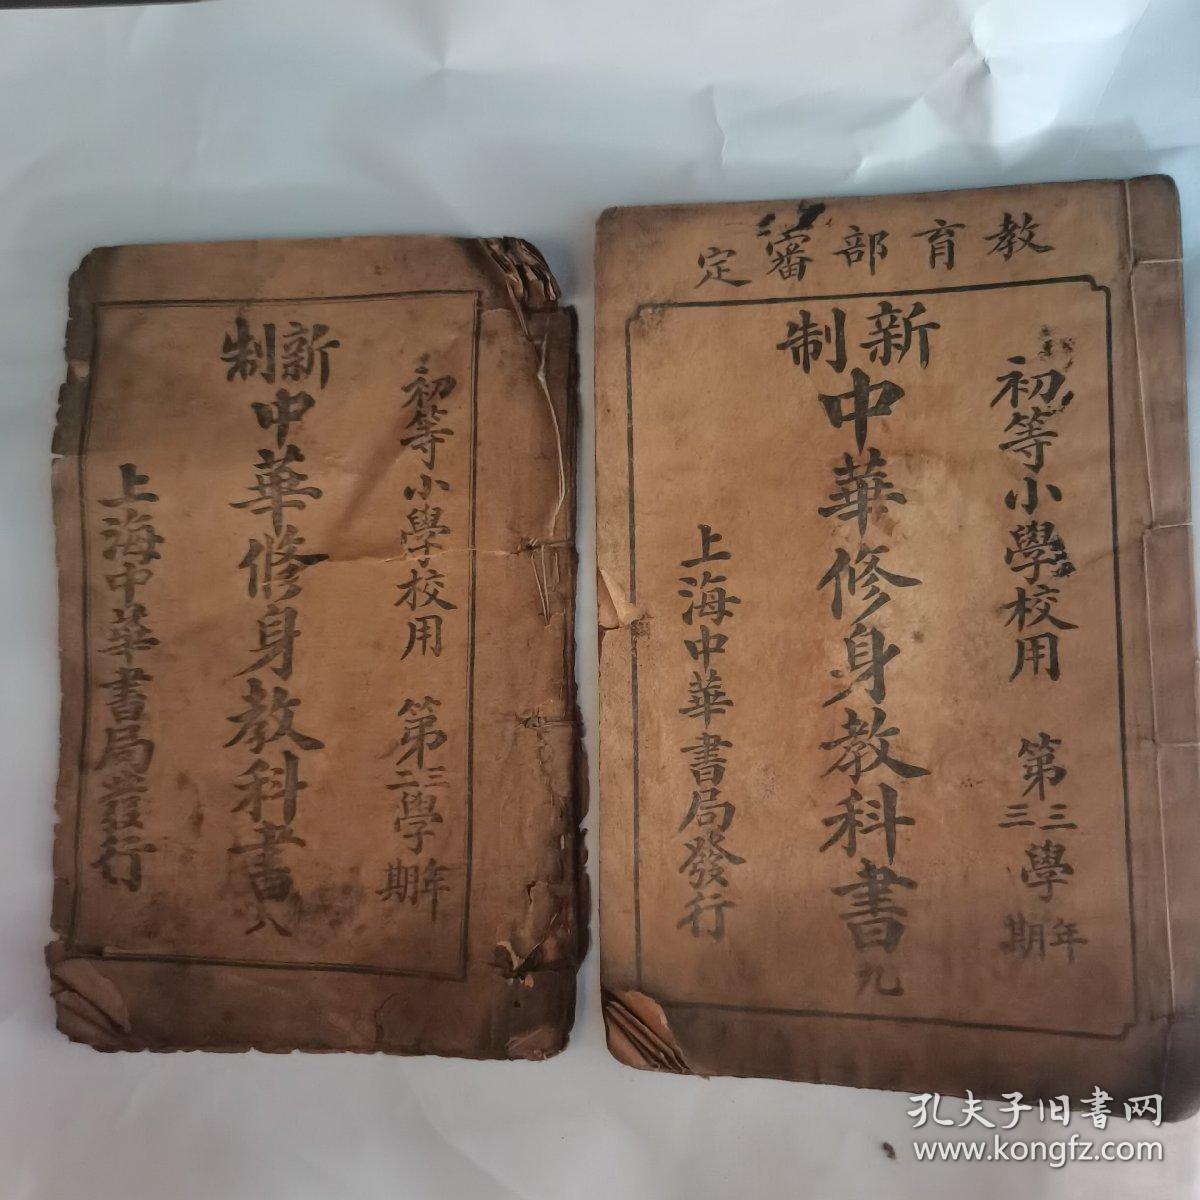 初等小學校用 第三學年
二學期
新制
中華修身教科書八
上海中華書局發行
教育部審定
初等小學校用 第三學年
三學期
新制
中華修身教科書九
上海中華書局發行
孔夫子旧書网
www.kongfz.com